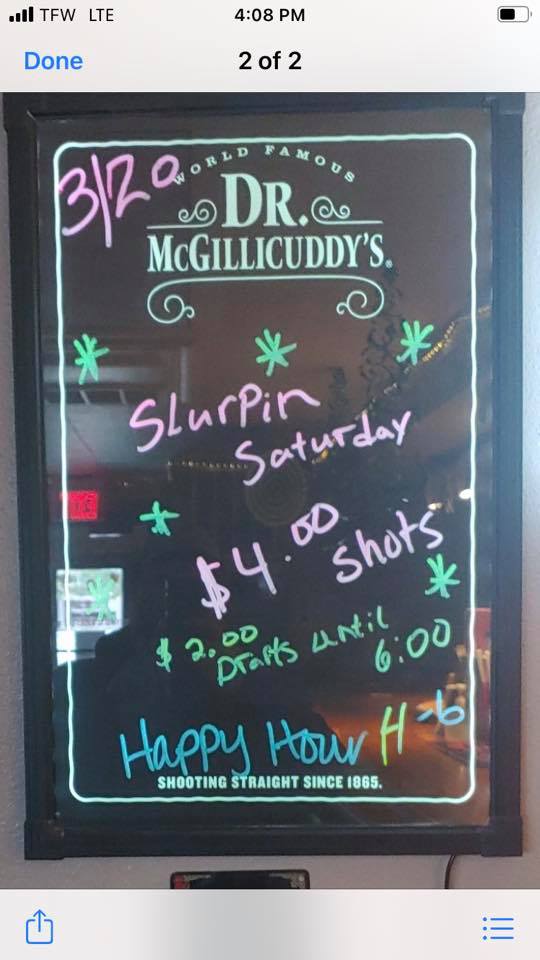 TFW LTE 4:08 PM
Done 2 of 2
3/20
WORLD FAMOUS
DR.
McGILLICUDDY'S®
Slurpin
Saturday
$4.00 shots
$2.00
Drafts until
6:00
Happy Hour 4-6
SHOOTING STRAIGHT SINCE 1865.